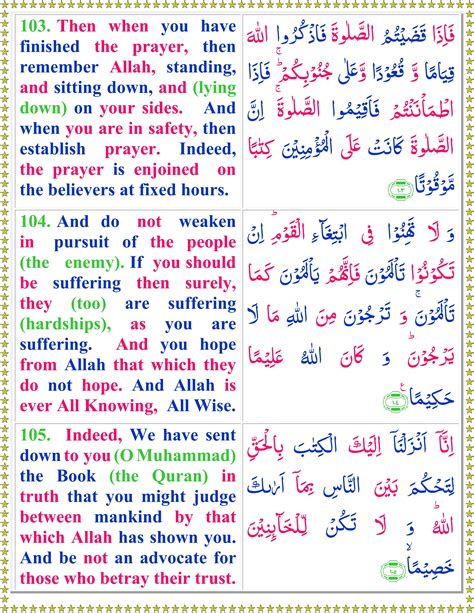 103. Then when you have
finished the prayer, then
remember Allah, standing,
and sitting down, and (lying
down) on your sides. And
when you are in safety, then
establish prayer. Indeed,
the prayer is enjoined on
the believers at fixed hours.
فَاِذَا قَضَيْتُمُ الصَّلٰوةَ فَاذْكُرُوا اللّٰهَ
قِيَامًا وَّ قُعُوْدًا وَّعَلٰى جُنُوْبِكُمْ ۚ فَاِذَا
اطْمَاْنَنْتُمْ فَاَقِيْمُوا الصَّلٰوةَ ۚ اِنَّ
الصَّلٰوةَ كَانَتْ عَلَى الْمُؤْمِنِيْنَ كِتٰبًا
مَّوْقُوْتًا ١٠٣
104. And do not weaken
in pursuit of the people
(the enemy). If you should
be suffering then surely,
they (too) are suffering
(hardships), as you are
suffering. And you hope
from Allah that which they
do not hope. And Allah is
ever All Knowing, All Wise.
وَ لَا تَهِنُوْا فِى ابْتِغَآءِ الْقَوْمِ ؕ اِنْ
تَكُوْنُوْا تَاْلَمُوْنَ فَاِنَّهُمْ يَاْلَمُوْنَ كَمَا
تَاْلَمُوْنَ ۚ وَ تَرْجُوْنَ مِنَ اللّٰهِ مَا لَا
يَرْجُوْنَ ؕ وَ كَانَ اللّٰهُ عَلِيْمًا
حَكِيْمًا ١٠٤ ع
105. Indeed, We have sent
down to you (O Muhammad)
the Book (the Quran) in
truth that you might judge
between mankind by that
which Allah has shown you.
And be not an advocate for
those who betray their trust.
اِنَّاۤ اَنْزَلْنَاۤ اِلَيْكَ الْكِتٰبَ بِالْحَقِّ
لِتَحْكُمَ بَيْنَ النَّاسِ بِمَاۤ اَرٰٮكَ
اللّٰهُ ؕ وَ لَا تَكُنْ لِّلْخَآٮِٕنِيْنَ
خَصِيْمًا ۙ ١٠٥